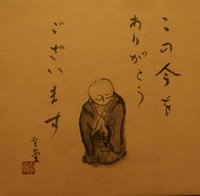 この今を
ありがとう
ございます